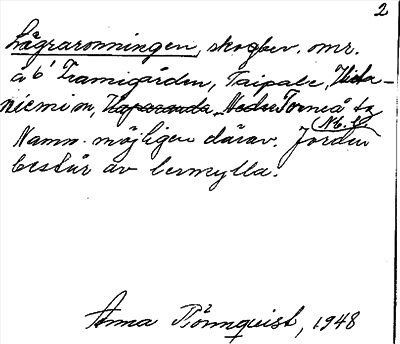 2
Lågraromningen, skogbev. omr.
å b' Framigården, Taipale, Hieta-
niemi sn, Haparanda, Neder Torneå tg
(Nb. l.)
Namn. möjligen därav. Jorden
består av lermylla.
Anna Rönnquist, 1948